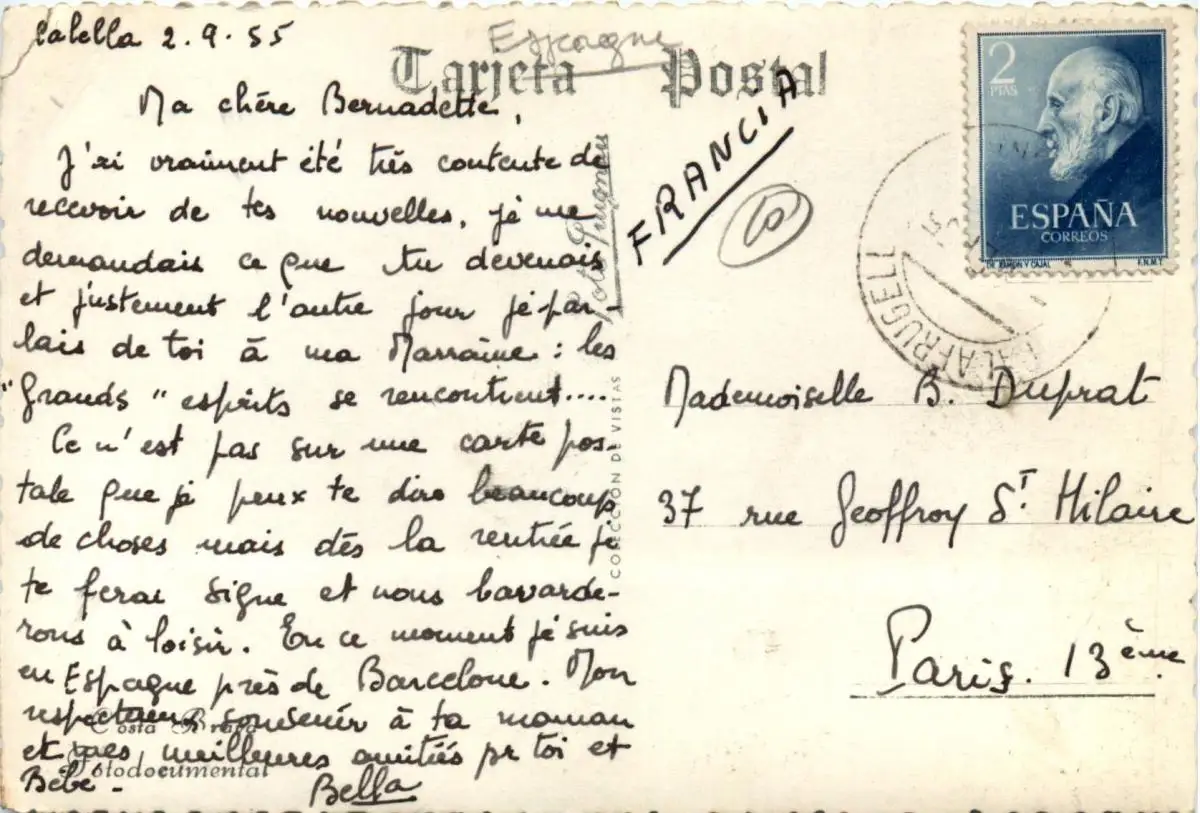 Calella 2.9.55
Espagne
Tarjeta Postal
Ma chère Bernadette,
J'ai vraiment été très contente de
recevoir de tes nouvelles. je me
demandais ce que tu devenais
et justement l'autre jour je par-
lais de toi à ma Marraine : les
"Grands" esprits se rencontrent....
Ce n'est pas sur une carte pos-
tale que je peux te dire beaucoup
de choses mais dès la rentrée je
te ferai signe et nous bavarde-
rons à loisir. En ce moment je suis
en Espagne près de Barcelone. Mon
respectueux souvenir à ta maman
et mes meilleures amitiés pr toi et
Bébé.
Bella
Costa Brava
Fotodocumental
COLECCIÓN DE VISTAS
FRANCIA
10
2
PTAS
ESPAÑA
CORREOS
DR. RAMON Y CAJAL
F.N.M.T.
PALAFRUGELL
Mademoiselle B. Duprat
37 rue Geoffroy St Hilaire
Paris. 13ème